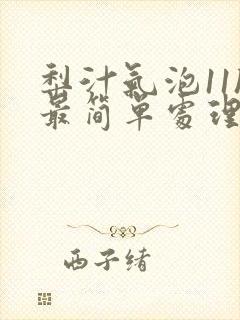 梨汁氣泡11
最简单處理
西子绪